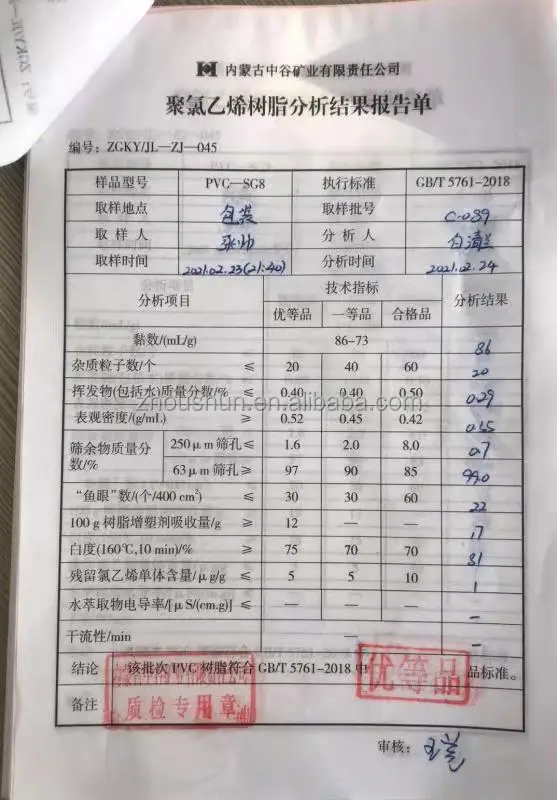 内蒙古中谷矿业有限责任公司
聚氯乙烯树脂分析结果报告单
编号：ZGKY/JL—ZJ—045
样品型号 PVC—SG8 执行标准 GB/T 5761-2018
取样地点 包装 取样批号 C-089
取样人 张帅 分析人
取样时间 2021.02.23(21:40) 分析时间 2021.02.24
分析项目 技术指标 分析结果
优等品 一等品 合格品
黏数/(mL/g) 86-73 86
杂质粒子数/个 ≤ 20 40 60 20
挥发物(包括水)质量分数/% ≤ 0.40 0.40 0.50 0.29
zhoushun.en.alibaba.com
表观密度/(g/mL) ≥ 0.52 0.45 0.42 0.55
筛余物质量分数/% 250μm 筛孔≤ 1.6 2.0 8.0 0.7
63μm 筛孔≥ 97 90 85 99.0
“鱼眼”数/(个/400 cm²) ≤ 30 30 60 22
100 g 树脂增塑剂吸收量/g ≥ 12 — — 17
白度(160℃,10 min)/% ≥ 75 70 70 81
残留氯乙烯单体含量/μg/g ≤ 5 5 10 1
水萃取物电导率/[μS/(cm.g)] ≤ — — — —
干流性/min — —
结论 该批次 PVC 树脂符合 GB/T 5761-2018 中 优等品 品标准。
内蒙古中谷矿业有限责任公司
质检专用章
备注
审核：